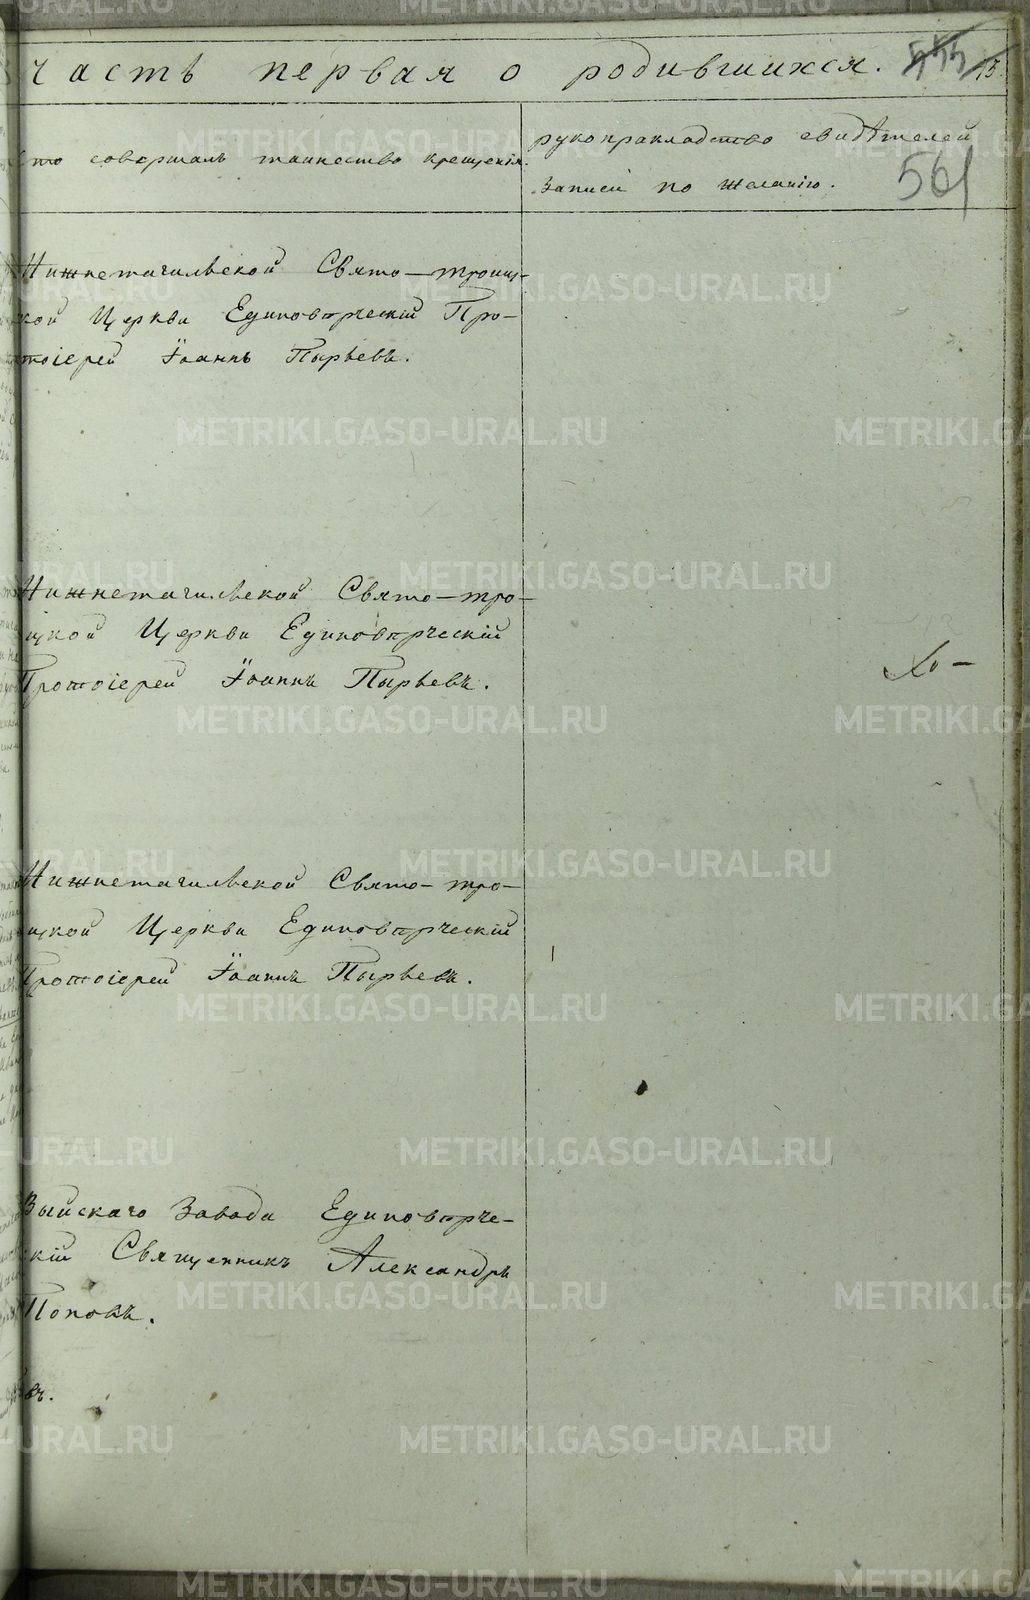 часть первая о родившихся. 555 15
561
Кто совершалъ таинство крещенія.
рукоприкладство свидѣтелей
записей по желанію.
Нижнетагильской Свято-троиц-
кой Церкви Единовѣрческій Про-
тоіерей Іоаннъ Пырьевъ.
Нижнетагильской Свято-тро-
ицкой Церкви Единовѣрческій
Протоіерей Іоаннъ Пырьевъ.
Хо-
Нижнетагильской Свято-тро-
ицкой Церкви Единовѣрческій
Протоіерей Іоаннъ Пырьевъ.
Выйскаго Завода Единовѣрче-
скій Священникъ Александръ
Поповъ.
въ.
METRIKI.GASO-URAL.RU